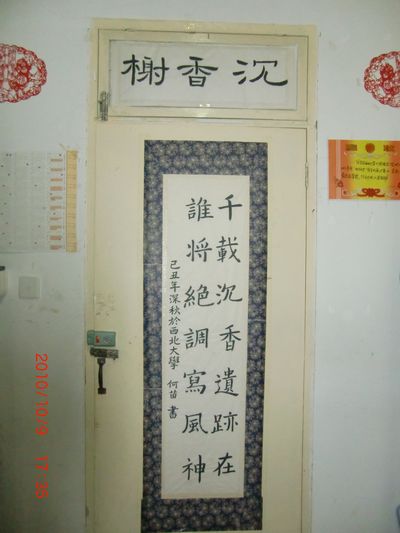 沉香榭
千載沉香遺跡在
誰將絕調寫風神
己丑年深秋於西北大學 何苗 書
2010/10/9 17:35